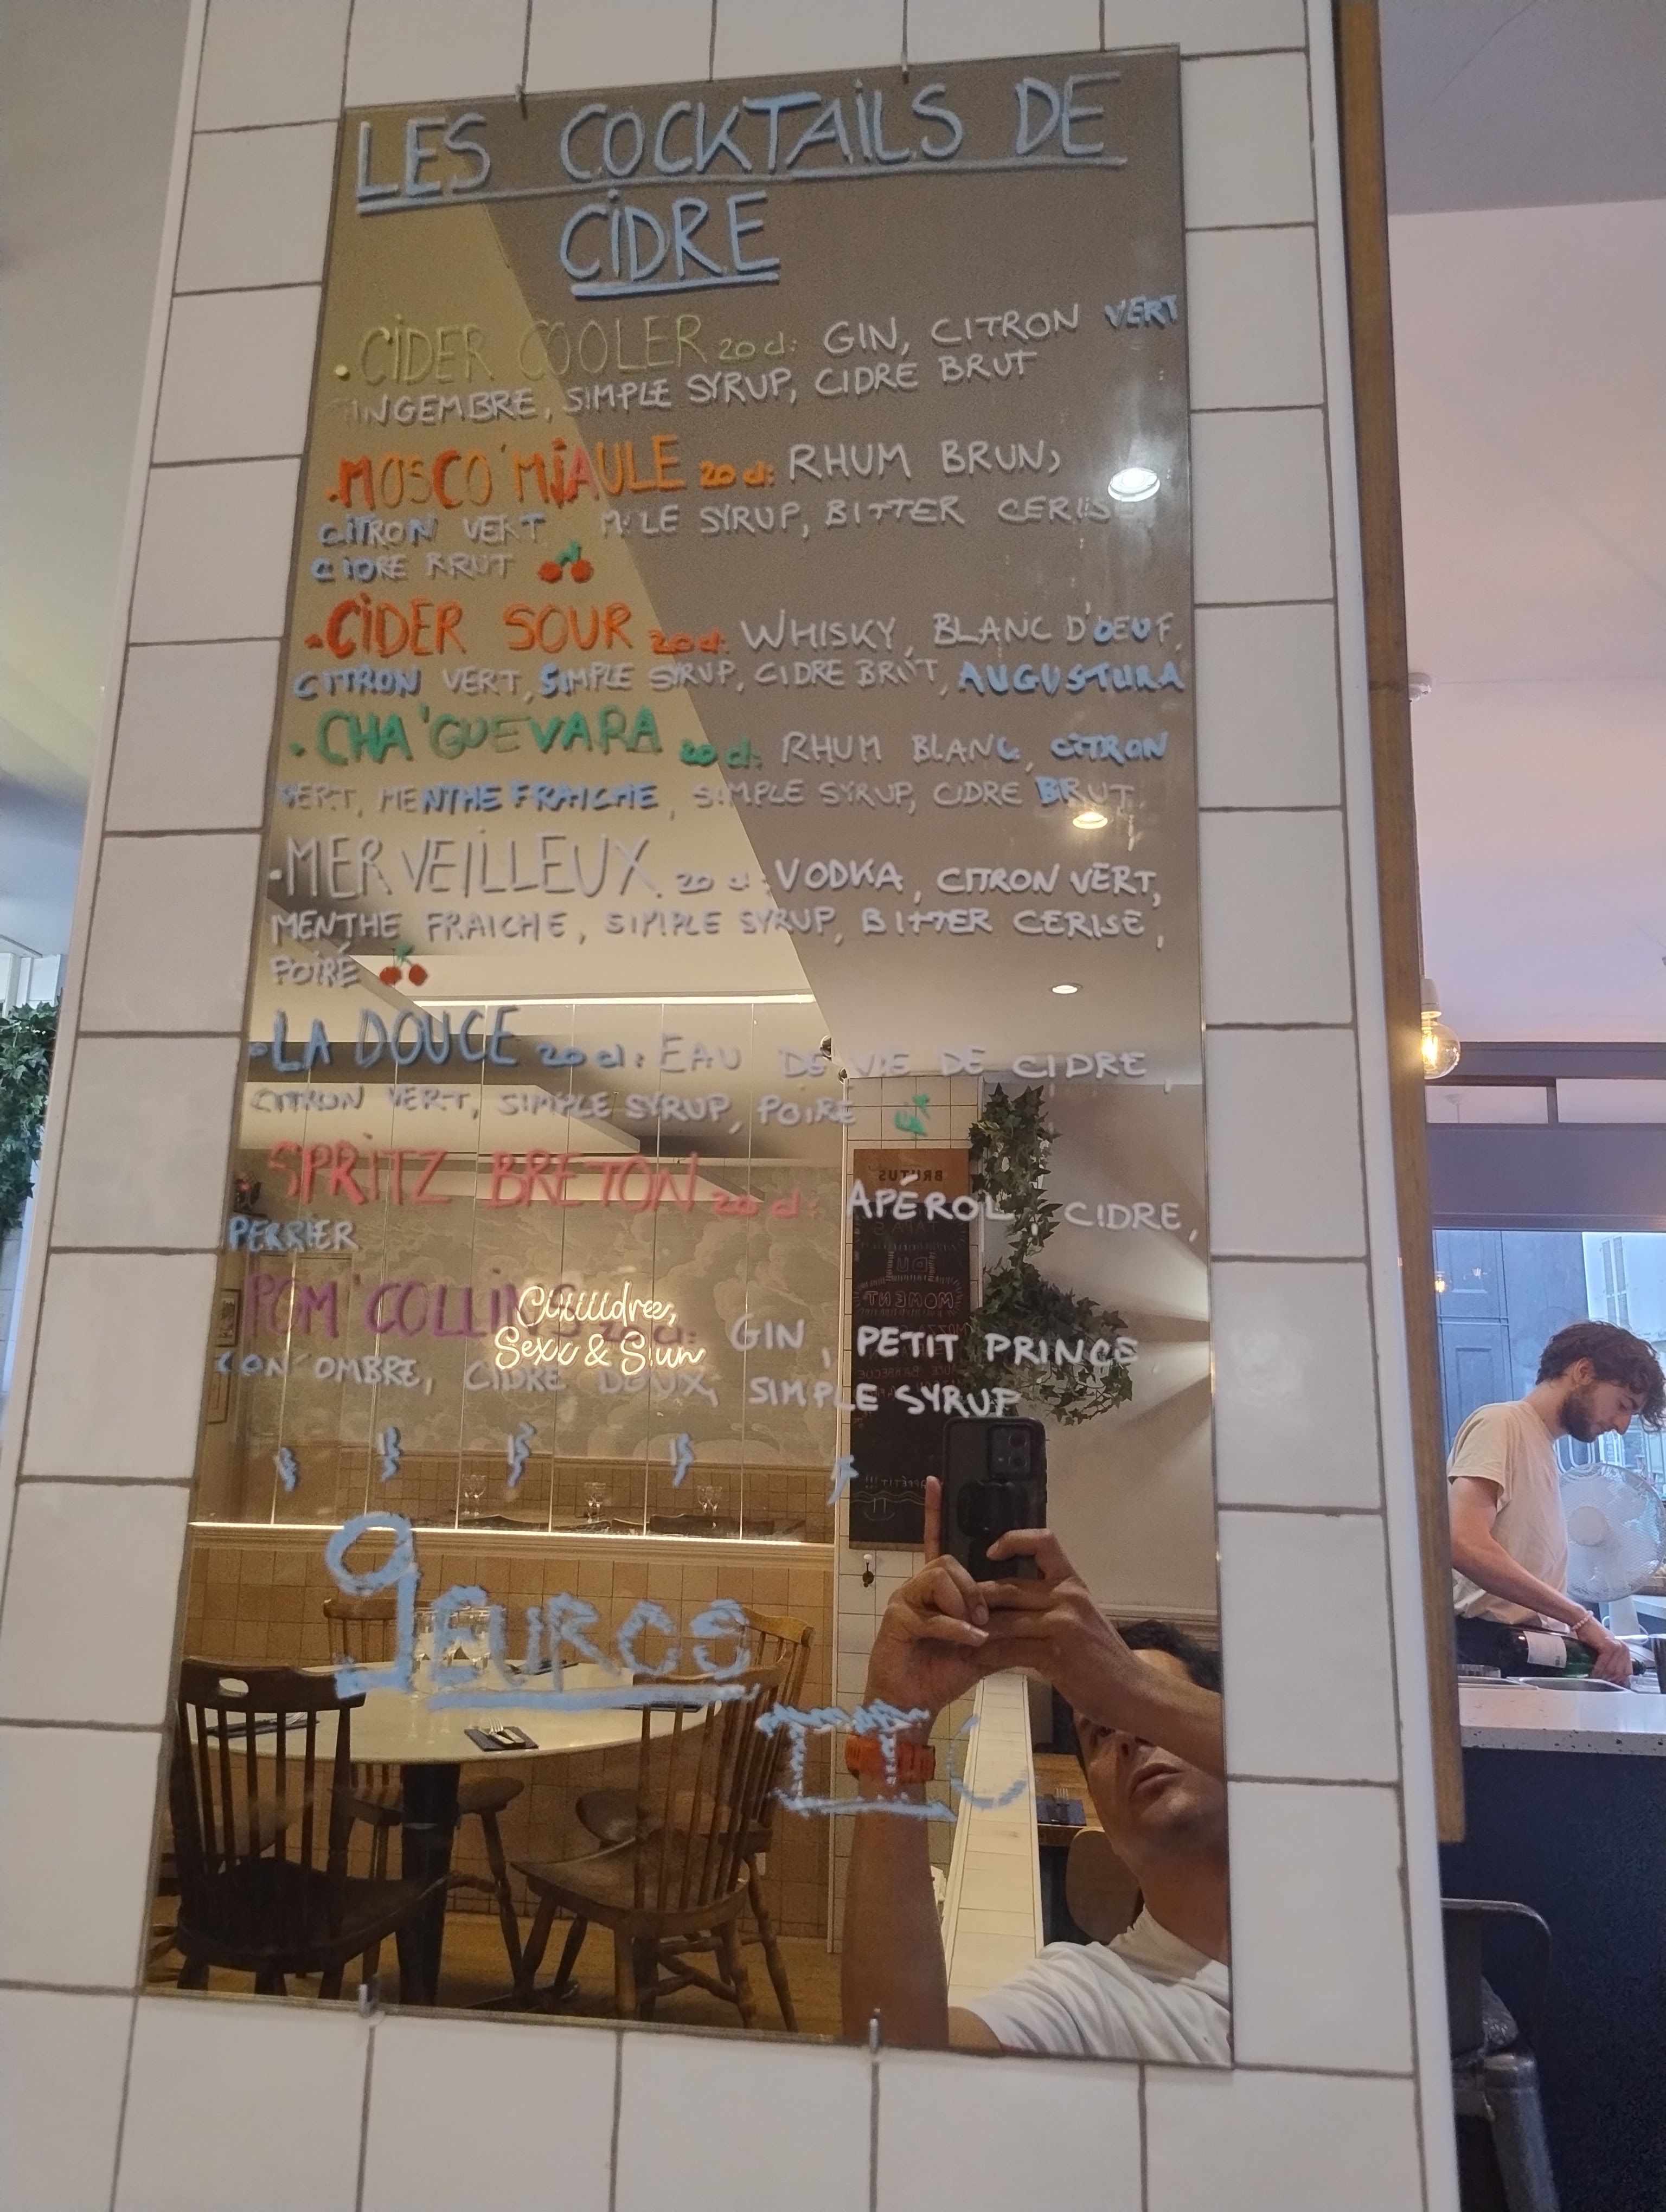 LES COCKTAILS DE
CIDRE
• CIDER COOLER 20 cl: GIN, CITRON VERT
INGEMBRE, SIMPLE SYRUP, CIDRE BRUT
• MOSCO'MIAULE 20 cl: RHUM BRUN,
CITRON VERT SYRUP, BITTER CERISE
CIDRE BRUT
• CIDER SOUR 20 cl: WHISKY, BLANC D'OEUF,
CITRON VERT, SIMPLE SYRUP, CIDRE BRUT, AUGUSTURA
• CHA'GUEVARA 20 cl: RHUM BLANC, CITRON
VERT, MENTHE FRAICHE, SIMPLE SYRUP, CIDRE BRUT
• MERVEILLEUX 20 cl: VODKA, CITRON VERT,
MENTHE FRAICHE, SIMPLE SYRUP, BITTER CERISE,
POIRÉ
• LA DOUCE 20 cl: EAU DE VIE DE CIDRE,
CITRON VERT, SIMPLE SYRUP, POIRE
SPRITZ BRETON 20 cl: APÉROL, CIDRE,
PERRIER
POM'COLLINS 20 cl: GIN, PETIT PRINCE
CONCOMBRE, CIDRE DOUX, SIMPLE SYRUP
Sexx & Sun
9 EUROS
BRUTUS
DU
MOMENT